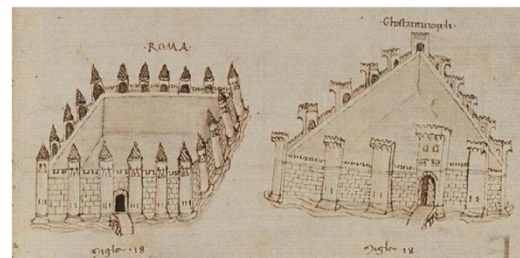 ·ROMA·
·Chostantinopoli·
Miglа 18
Miglа 18